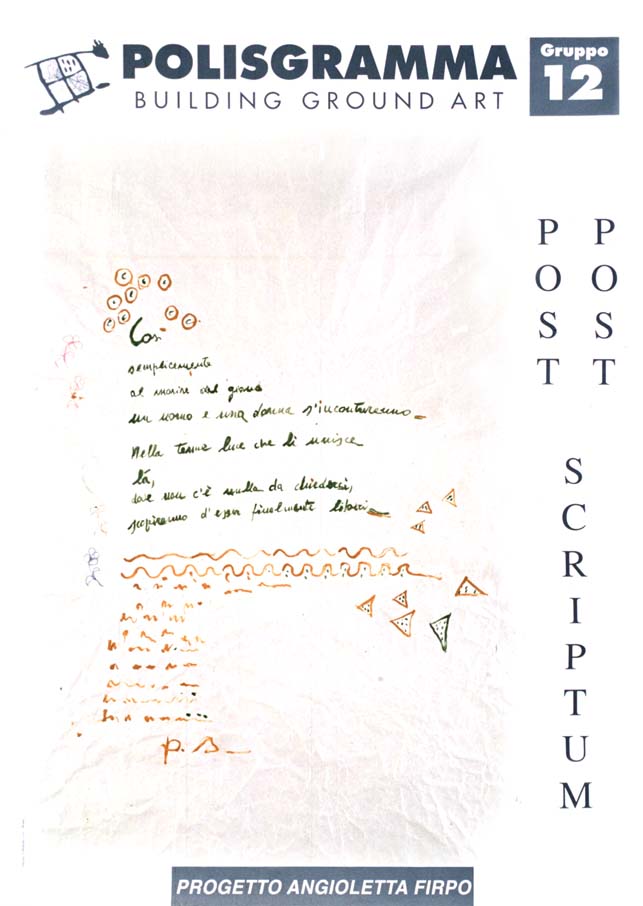 POLISGRAMMA
BUILDING GROUND ART
Gruppo
12
POST
POST
SCRIPTUM
Così
semplicemente
al morire del giorno
un uomo e una donna s'incontreranno
Nella tenue luce che li unisce
là,
dove non c'è nulla da chiedersi,
scopriranno d'esser finalmente
P. B.
PROGETTO ANGIOLETTA FIRPO